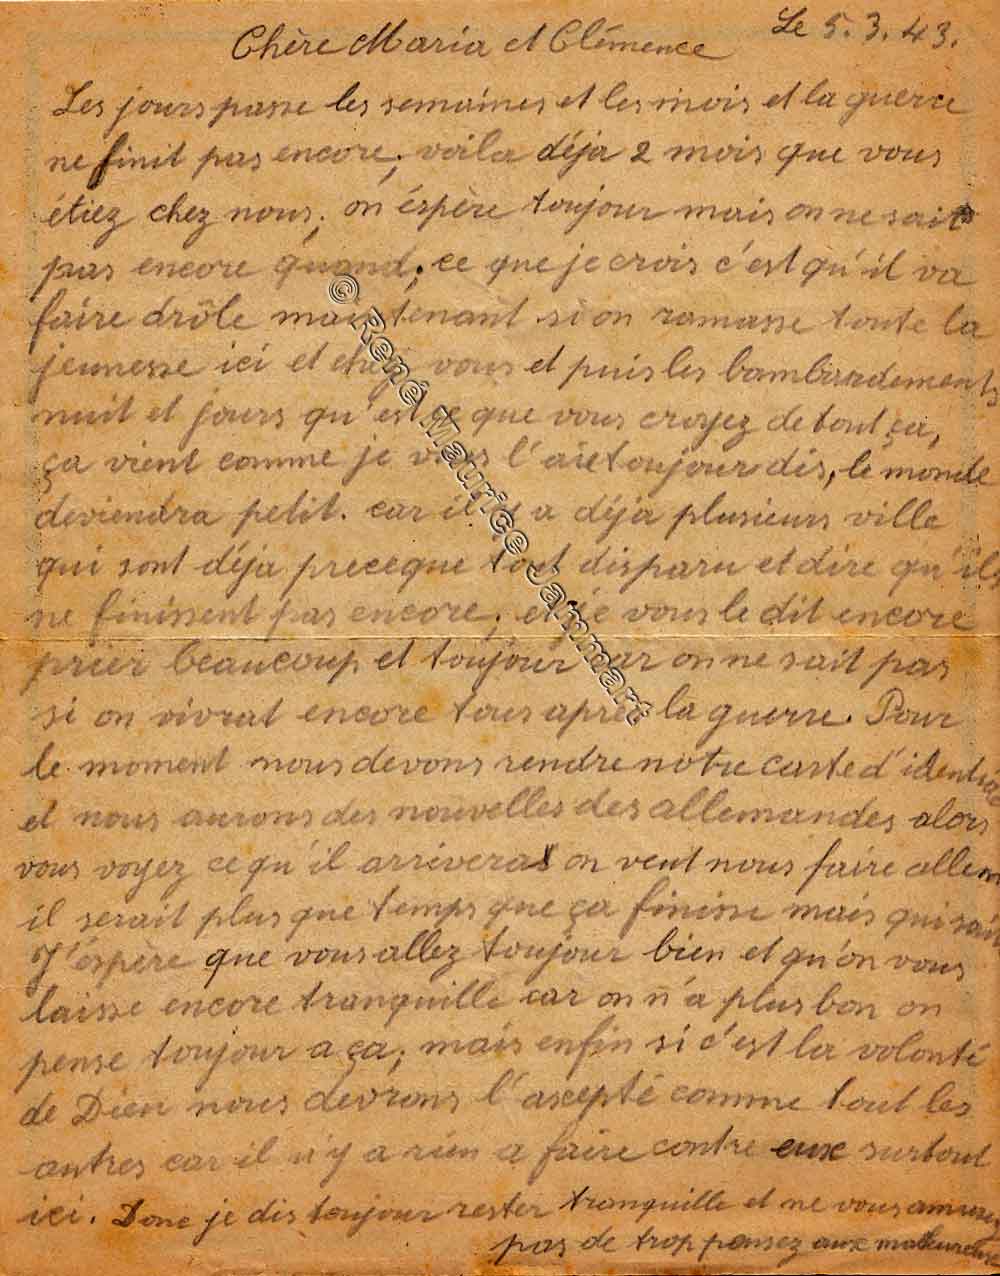 Le 5.3.43.
Chère Maria et Clémence
Les jours passe les semaines et les mois et la guerre
ne finit pas encore, voila déja 2 mois que vous
étiez chez nous. on éspère toujour mais on ne sait
pas encore quand, ce que je crois c'est qu'il va
faire drôle maintenant si on ramasse toute la
jeunesse ici et chez vous et puis les bombardements
nuit et jours qu'est ce que vous croyez de tout ça,
ça vient comme je vous l'ais toujour dis, le monde
deviendra petit. car il y a déja plusieurs ville
qui sont déja preceque tout disparu et dire qu'ils
ne finissent pas encore, et je vous le dit encore
prier beaucoup et toujour car on ne sait pas
si on vivrat encore tous après la guerre. Pour
le moment nous devons rendre notre carte d'identité
et nous aurons des nouvelles des allemandes alors
vous voyez ce qu'il arrivera on veut nous faire allem
il serait plus que temps que ça finisse mais qui sait
J'éspère que vous allez toujour bien et qu'on vous
laisse encore tranquille car on n'a plus bon on
pense toujour a ça, mais enfin si c'est la volonté
de Dieu nous devrons l'ascepté comme tout les
autres car il n'y a rien a faire contre eux surtout
ici. Donc je dis toujour rester tranquille et ne vous amusez
pas de trop pensez aux malheureux
© René Maurice Jammart